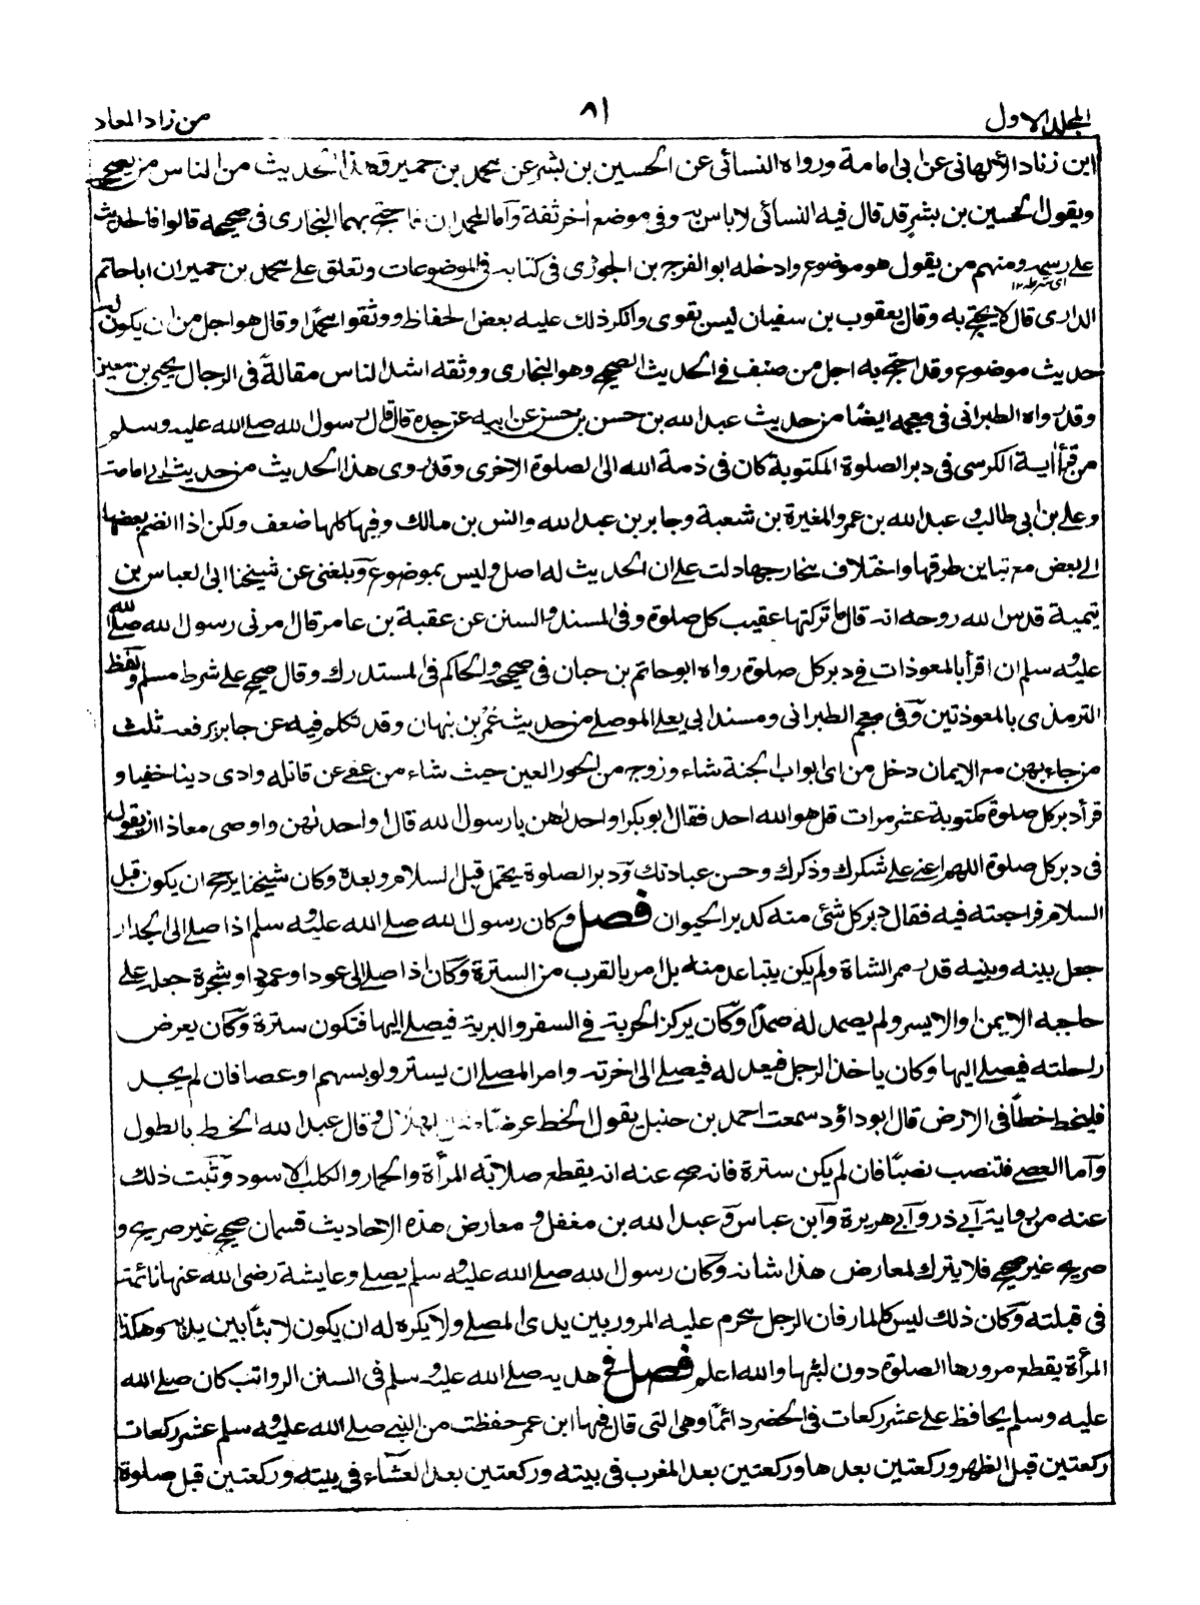 المجلد الاول
٨١
من زاد المعاد
ابن زناد الألهانى عن ابى امامة ورواه النسائى عن الحسين بن بشر عن محمد بن حمير وهذا الحديث من الناس من يصححه
ويقول الحسين بن بشر قد قال فيه النسائى لا باس به وفى موضع اخر ثقة وآما المحمدان فاحتج بهما البخارى فى صحيحه قالوا فالحديث
على رسمه ومنهم من يقول هو موضوع وادخله ابو الفرج بن الجوزى فى كتابه فى الموضوعات وتعلق على محمد بن حمير ان اباحاتم
اى شرطه ١٢
الدارى قال لا يحتج به وقال يعقوب بن سفيان ليس بقوى وانكر ذلك عليه بعض الحفاظ ووثقوا محمدا وقال هو اجل من ان يكون له
حديث موضوع وقد احتج به اجل من صنف فى الحديث الصحيح وهو البخارى ووثقه اشد الناس مقالة فى الرجال يحيى بن معين
وقد رواه الطبرانى فى معجمه ايضا من حديث عبد الله بن حسن بن حسن عن ابيه عن جده قال قال رسول الله صلى الله عليه وسلم
من قرأ اية الكرسى فى دبر الصلوة المكتوبة كان فى ذمة الله الى الصلوة الاخرى وقد روى هذا الحديث من حديث ابى امامة
وعلى بن ابى طالب و عبد الله بن عمر والمغيرة بن شعبة وجابر بن عبد الله وانس بن مالك وفيها كلها ضعف ولكن اذا انضم بعضها
الى بعض مع تباين طرقها واختلاف مخارجها دلت على ان الحديث له اصل وليس بموضوع وبلغنى عن شيخنا ابى العباس بن
تيمية قدس الله روحه انه قال ما تركتها عقيب كل صلوة وفى المسند والسنن عن عقبة بن عامر قال امرنى رسول الله صلى الله
عليه وسلم ان اقرأ بالمعوذات فى دبر كل صلوة رواه ابو حاتم بن حبان فى صحيحه والحاكم فى المستدرك وقال صحيح على شرط مسلم ولفظ
الترمذى بالمعوذتين وفى معجم الطبرانى ومسند ابى يعلى الموصلى من حديث عمر بن نبهان وقد تكلم فيه عن جابر يرفعه ثلث
من جاء بهن مع الايمان دخل من اى ابواب الجنة شاء وزوج من الحور العين حيث شاء من عفى عن قاتله وادى دينا خفيا و
قرأ دبر كل صلوة مكتوبة عشر مرات قل هو الله احد فقال ابو بكر او احدٰهن يا رسول الله قال او احدٰهن واوصى معاذا ان يقول
فى دبر كل صلوة اللهم اعنى على شكرك وذكرك وحسن عبادتك ودبر الصلوة يحتمل قبل السلام وبعده وكان شيخنا يرجح ان يكون قبل
السلام فراجعته فيه فقال دبر كل شئ منه كدبر الحيوان فصل وكان رسول الله صلى الله عليه وسلم اذا صلى الى الجدار
جعل بينه وبينه قدر ممر الشاة ولم يكن يتباعد منه بل امر بالقرب من السترة وكان اذا صلى الى عود او عمود او شجرة جعله على
حاجبه الايمن او الايسر ولم يصمد له صمدًا وكان يركز الحربة فى السفر والبرية فيصلى اليها فتكون سترة وكان يعرض
راحلته فيصلى اليها وكان ياخذ الرحل فيعدله فيصلى الى اخرته وامر المصلى ان يستتر ولو بسهم او عصا فان لم يجد
فليخط خطاً فى الارض قال ابو داؤد سمعت احمد بن حنبل يقول الخط عرضًا مثل الهلال وقال عبد الله الخط بالطول
وآما العصى فتنصب نصبًا فان لم يكن سترة فانه صح عنه انه يقطع صلاته المرأة والحمار والكلب الاسود وثبت ذلك
عنه من رواية آبى ذر وآبى هريرة وآبن عباس و عبد الله بن مغفل و معارض هذه الاحاديث قسمان صحيح غير صريح و
صريح غير صحيح فلا يترك لمعارض هذا شانه وكان رسول الله صلى الله عليه وسلم يصلى وعايشة رضى الله عنها نائمة
فى قبلته وكان ذلك ليس كالمار فان الرجل محرم عليه المرور بين يدى المصلى ولا يكره له ان يكون لابثًا بين يديه وهكذا
المرأة يقطع مرورها الصلوة دون لبثها والله اعلم فصل فى هديه صلى الله عليه وسلم فى السنن الرواتب كان صلى الله
عليه وسلم يحافظ على عشر ركعات فى الحضر دائمًا وهى التى قال فيها ابن عمر حفظت من النبى صلى الله عليه وسلم عشر ركعات
ركعتين قبل الظهر وركعتين بعدها وركعتين بعد المغرب فى بيته وركعتين بعد العشاء فى بيته وركعتين قبل صلوة